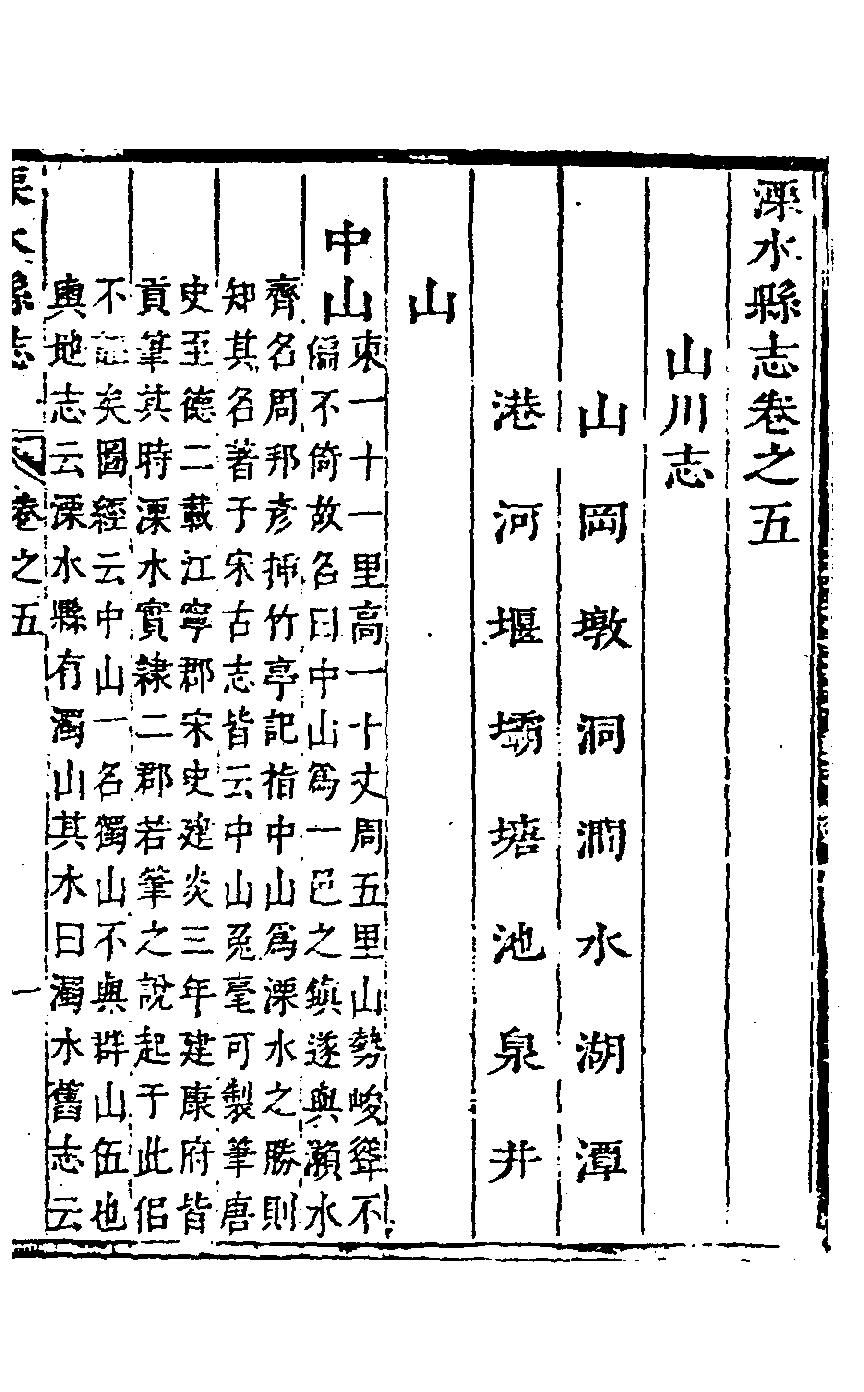 溧水縣志卷之五
山川志
山岡墩洞澗水湖潭
港河堰壩塘池泉井
山
中山
東一十一里高一十丈周五里山勢峻聳不
偏不倚故名曰中山爲一邑之鎮遂與瀨水
齊名周邦彥插竹亭記指中山爲溧水之勝則
知其名著于宋古志皆云中山兔毫可製筆唐
史至德二載江寧郡宋史建炎三年建康府皆
貢筆其時溧水實隸二郡若筆之說起于此侣
不誣矣圖經云中山一名獨山不與群山伍也
輿地志云溧水縣有濁山其水曰濁水舊志云
溧水縣志
卷之五
一